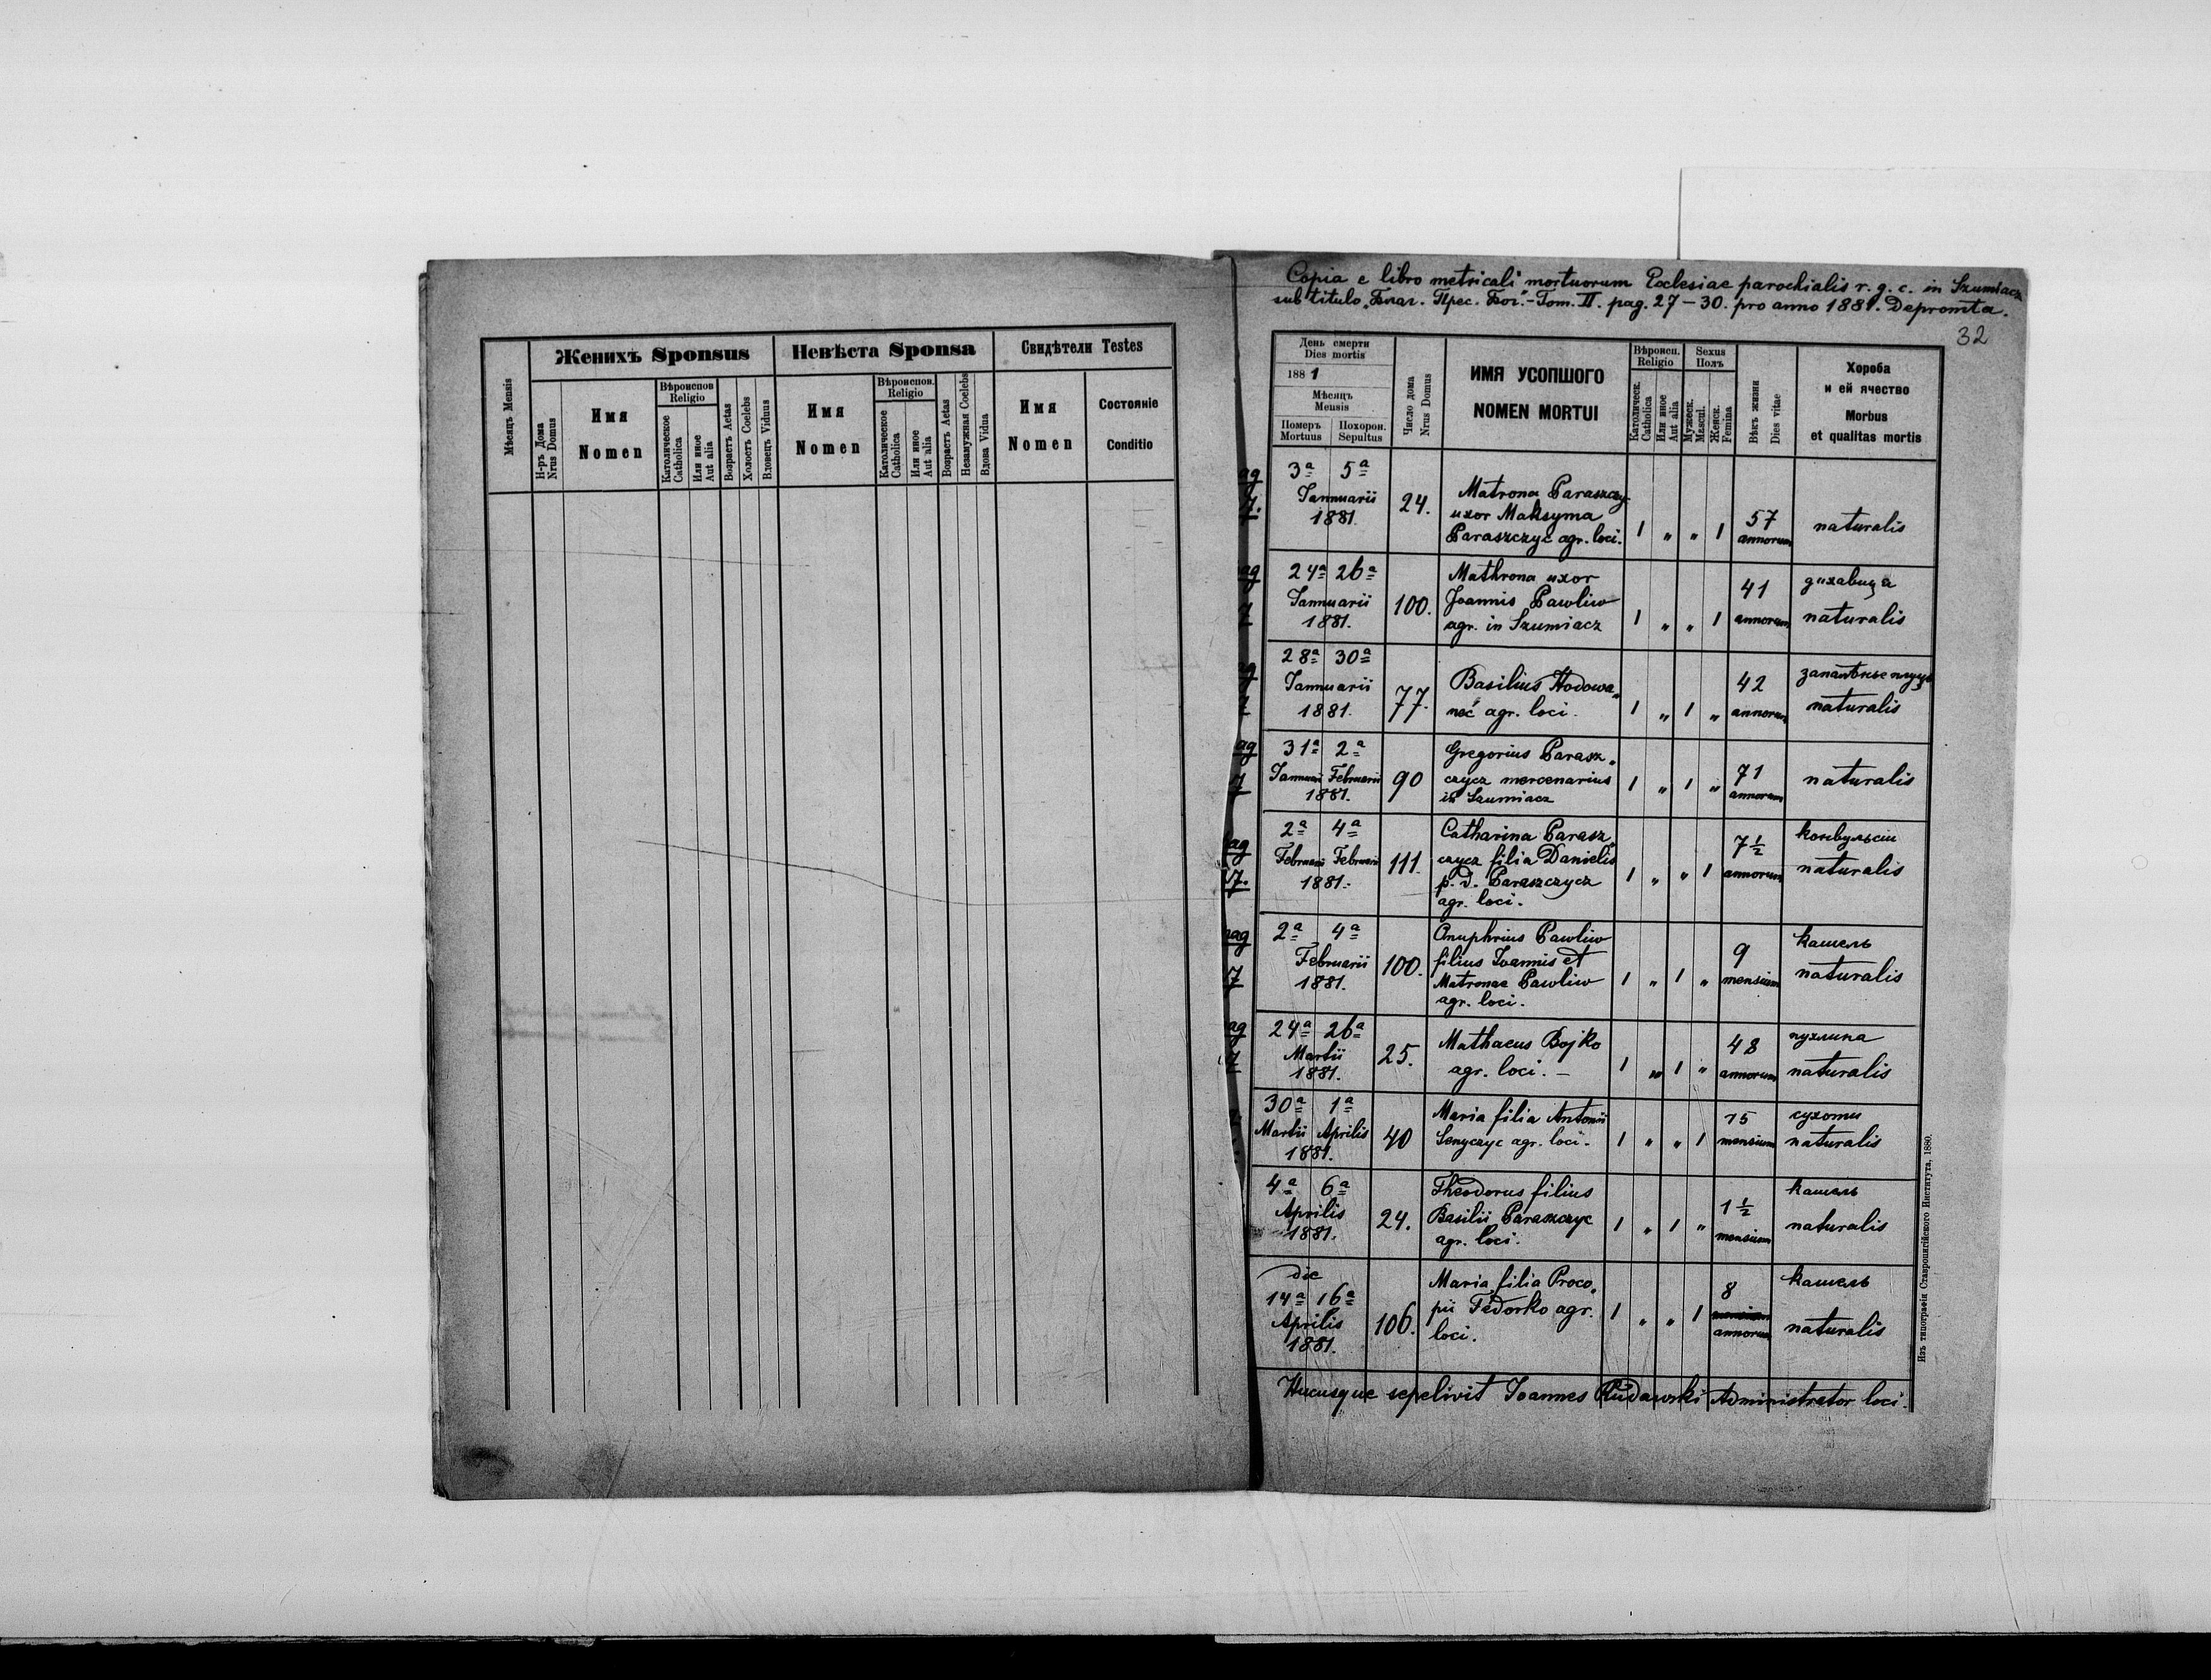 Женихъ Sponsus
Невѣста Sponsa
Свидѣтели Testes
Мѣсяцъ Mensis
Н-ръ Дома
Nrus Domus
Имя
Nomen
Вѣроиспов
Religio
Католическое
Catholica
Или иное
Aut alia
Возрастъ Aetas
Холостъ Coelebs
Вдовецъ Viduus
Имя
Nomen
Вѣроиспов.
Religio
Католическое
Catholica
Или иное
Aut alia
Возрастъ Aetas
Незамужная Coelebs
Вдова Vidua
Имя
Nomen
Состоянie
Conditio
Copia e libro metricali mortuorum Ecclesiae parochialis r. g. c. in Szumiacz
sub titulo „Благ. Прес. Бог." - Tom. II. pag. 27 – 30. pro anno 1881. Deprompta.
32
День смерти
Dies mortis
1881
Мѣсяцъ
Mensis
Померъ
Mortuus
Похорон.
Sepultus
Число дома
Nrus Domus
ИМЯ УСОПШОГО
NOMEN MORTUI
Вѣроисп.
Religio
Католическ.
Catholica
Или иное
Aut alia
Sexus
Полъ
Мужеск.
Mascul.
Женск.
Femina
Вѣкъ жизни
Dies vitae
Хороба
и ей ячество
Morbus
et qualitas mortis
ag
7.
3ª 5ª
Jannuarii
1881.
24.
Matrona Paraszczy-
uxor Maksyma
Paraszczyc agr. loci.
1 „ „ 1
57
annorum
naturalis
ag
7
24ª 26ª
Jannuarii
1881.
100.
Mathrona uxor
Joannis Pawliw
agr. in Szumiacz
1 „ „ 1
41
annorum
дихавица
naturalis
28ª 30ª
Jannuarii
1881.
77.
Basilius Hodowa„
neć agr. loci.
1 „ 1 „
42
annorum
naturalis
ag
7
31ª 2ª
Januarii Februarii
1881.
90
Gregorius Parasz„
czycz mercenarius
in Szumiacz
1 „ 1 „
71
annorum
naturalis
ag
7.
2ª 4ª
Februarii Februarii
1881.
111.
Catharina Parasz„
czycz filia Danielis
p. d. Paraszczycz
agr. loci.
1 „ „ 1
7½
annorum
конвульсіи
naturalis
ag
7
2ª 4ª
Februarii
1881.
100.
Onuphrius Pawliw
filius Ioannis et
Matronae Pawliw
agr. loci.
1 „ 1 „
9
mensium
кашель
naturalis
ag
7
24ª 26ª
Martii
1881.
25.
Mathaeus Bojko
agr. loci. –
1 „ 1 „
48
annorum
пухлина
naturalis
30ª 1ª
Martii Aprilis
1881.
40
Maria filia Antonii
Senyczyc agr. loci.
1 „ „ 1
15
mensium
сухоты
naturalis
4ª 6ª
Aprilis
1881.
24.
Theodorus filius
Basilii Paraszczyc
agr. loci.
1 „ 1 „
1½
mensium
кашель
naturalis
die
14ª 16ª
Aprilis
1881.
106.
Maria filia Proco„
pii Fedorko agr.
loci.
1 „ „ 1
8
annorum
кашель
naturalis
Hucusque sepelivit Joannes Rudawski Administrator loci.
Изъ типографіи Ставропигійского Института, 1880.